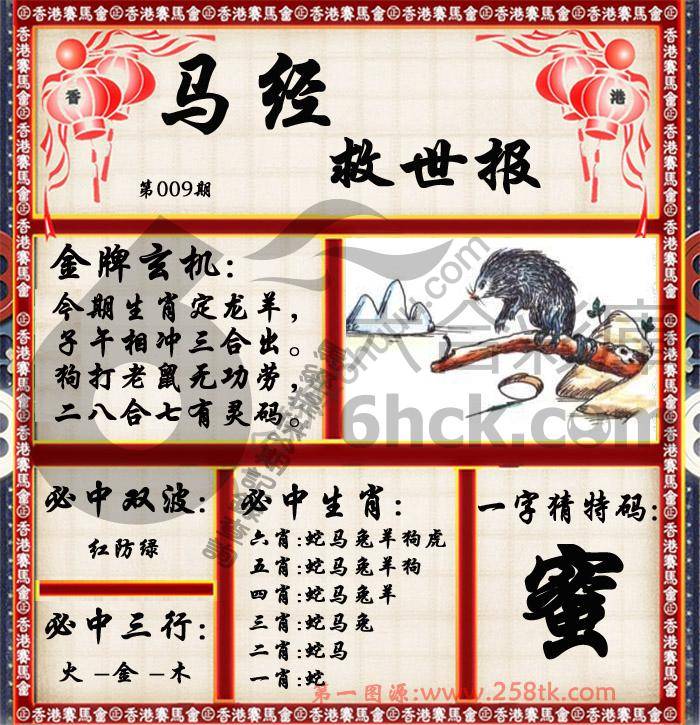 香港賽馬會
香 港
马经
救世报
第009期
金牌玄机:
今期生肖定龙羊，
子午相冲三合出。
狗打老鼠无功劳，
二八合七有灵码。
六合彩库
6hck.com
必中双波:
红防绿
必中三行:
火-金-木
必中生肖:
六肖:蛇马兔羊狗虎
五肖:蛇马兔羊狗
四肖:蛇马兔羊
三肖:蛇马兔
二肖:蛇马
一肖:蛇
一字猜特码:
蜜
第一图源:www.258tk.com